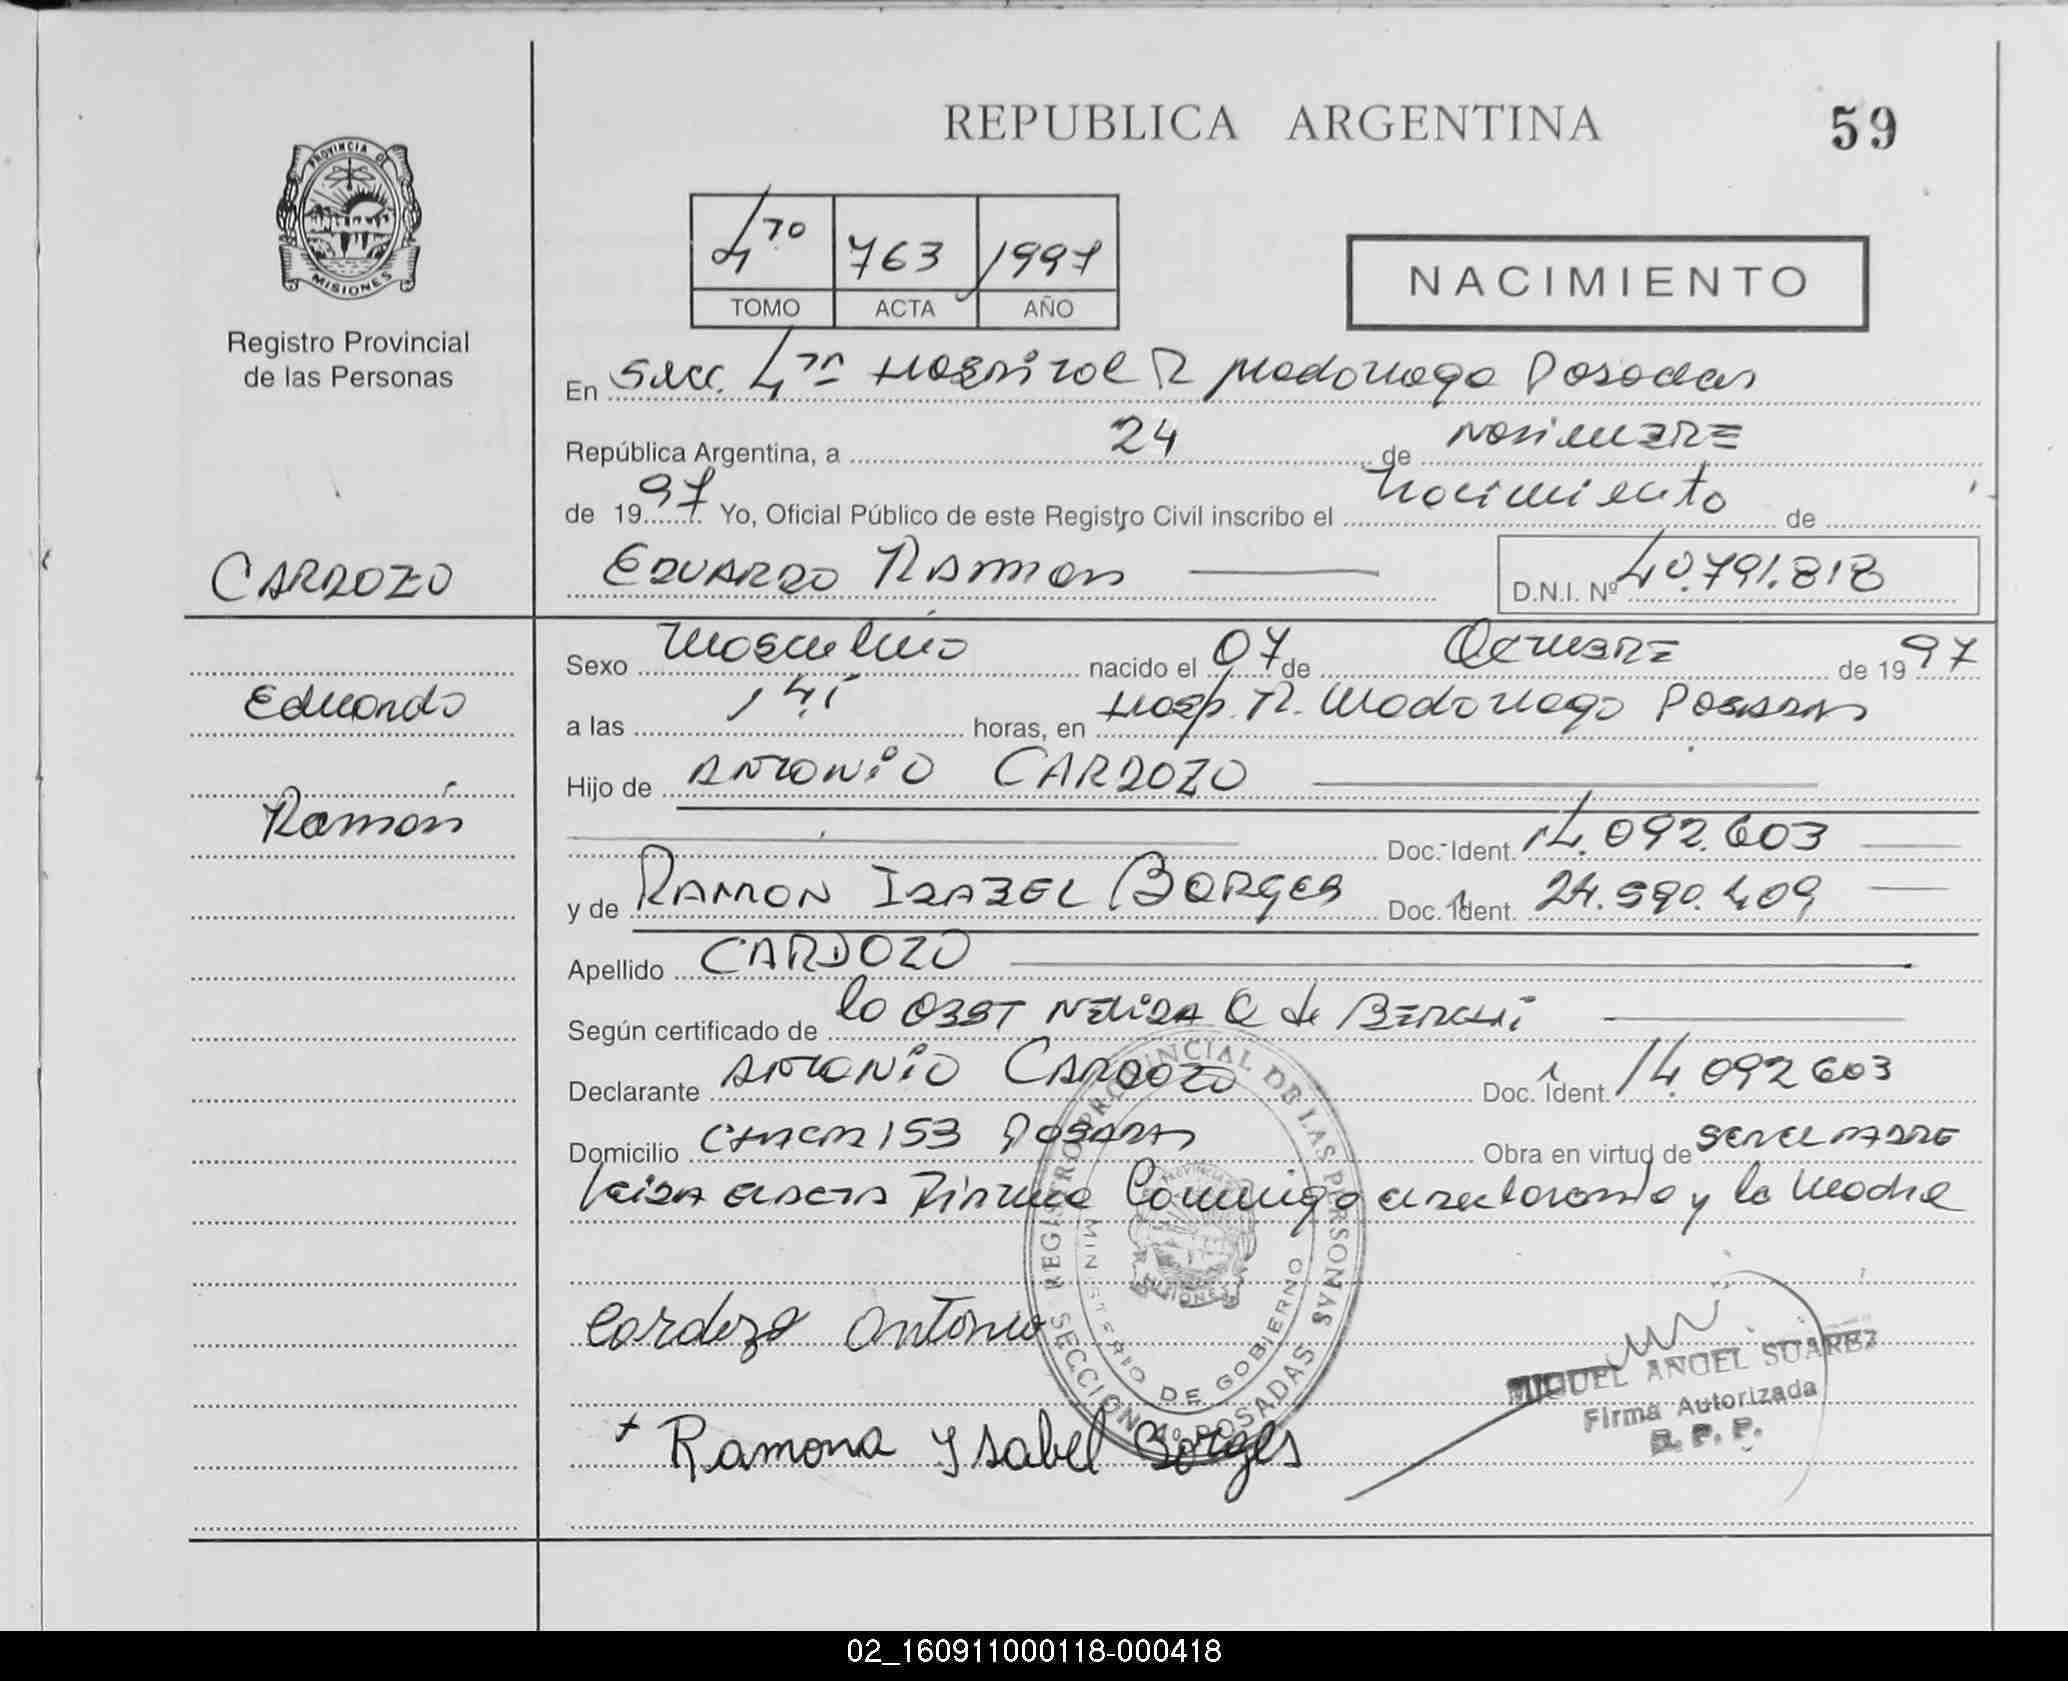 REPUBLICA ARGENTINA
59
PROVINCIA DE
MISIONES
Registro Provincial
de las Personas
4 TO 763 1997
TOMO ACTA AÑO
NACIMIENTO
En Secc. 4ta Hospital R Madariaga Posadas
República Argentina, a 24 de Noviembre
de 1997 Yo, Oficial Público de este Registro Civil inscribo el nacimiento de
CARDOZO
EDUARDO RAMON
D.N.I. Nº 40.791.818
Sexo masculino nacido el 07 de Octubre de 1997
Eduardo
a las horas, en Hosp. R. Madariaga Posadas
Hijo de ANTONIO CARDOZO
Ramón
Doc. Ident. 14.092.603
y de RAMON ISABEL BORGES Doc. Ident. 24.590.409
Apellido CARDOZO
Según certificado de la OBST NELIDA C de
Declarante ANTONIO CARDOZO Doc. Ident. 14.092603
Domicilio 153 POSADAS Obra en virtud de SER EL PADRE
Leida Firma Conmigo el declarante y la Madre
Cardozo Antonio
+ Ramona Ysabel Borges
REGISTRO PROVINCIAL DE LAS PERSONAS
MINISTERIO DE GOBIERNO
SECCION 4º POSADAS
MISIONES
MIGUEL ANGEL SUAREZ
Firma Autorizada
R. P. P.
02_160911000118-000418